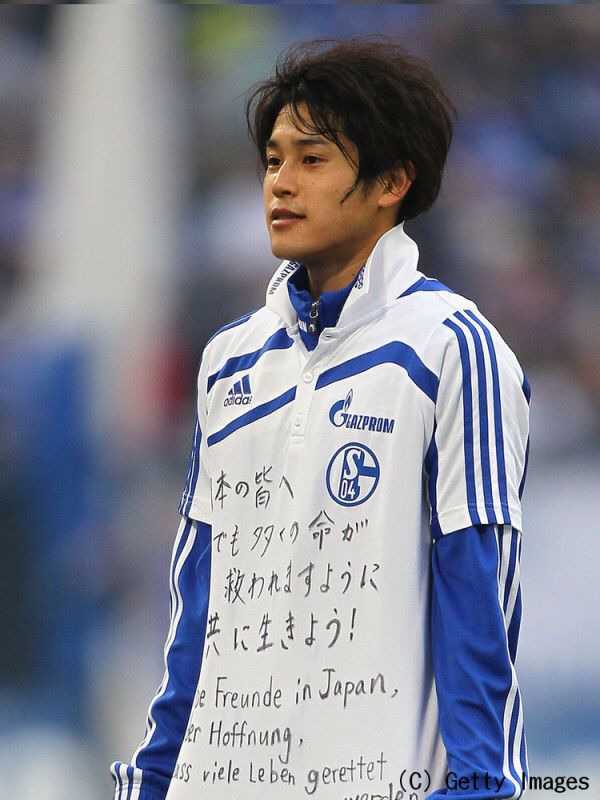 GAZPROM
adidas
GAZPROM
S
04
本の皆へ
でも多くの命が
救われますように
共に生きよう!
Freunde in Japan,
er Hoffnung,
ass viele Leben gerettet
werden
(C) Getty Images